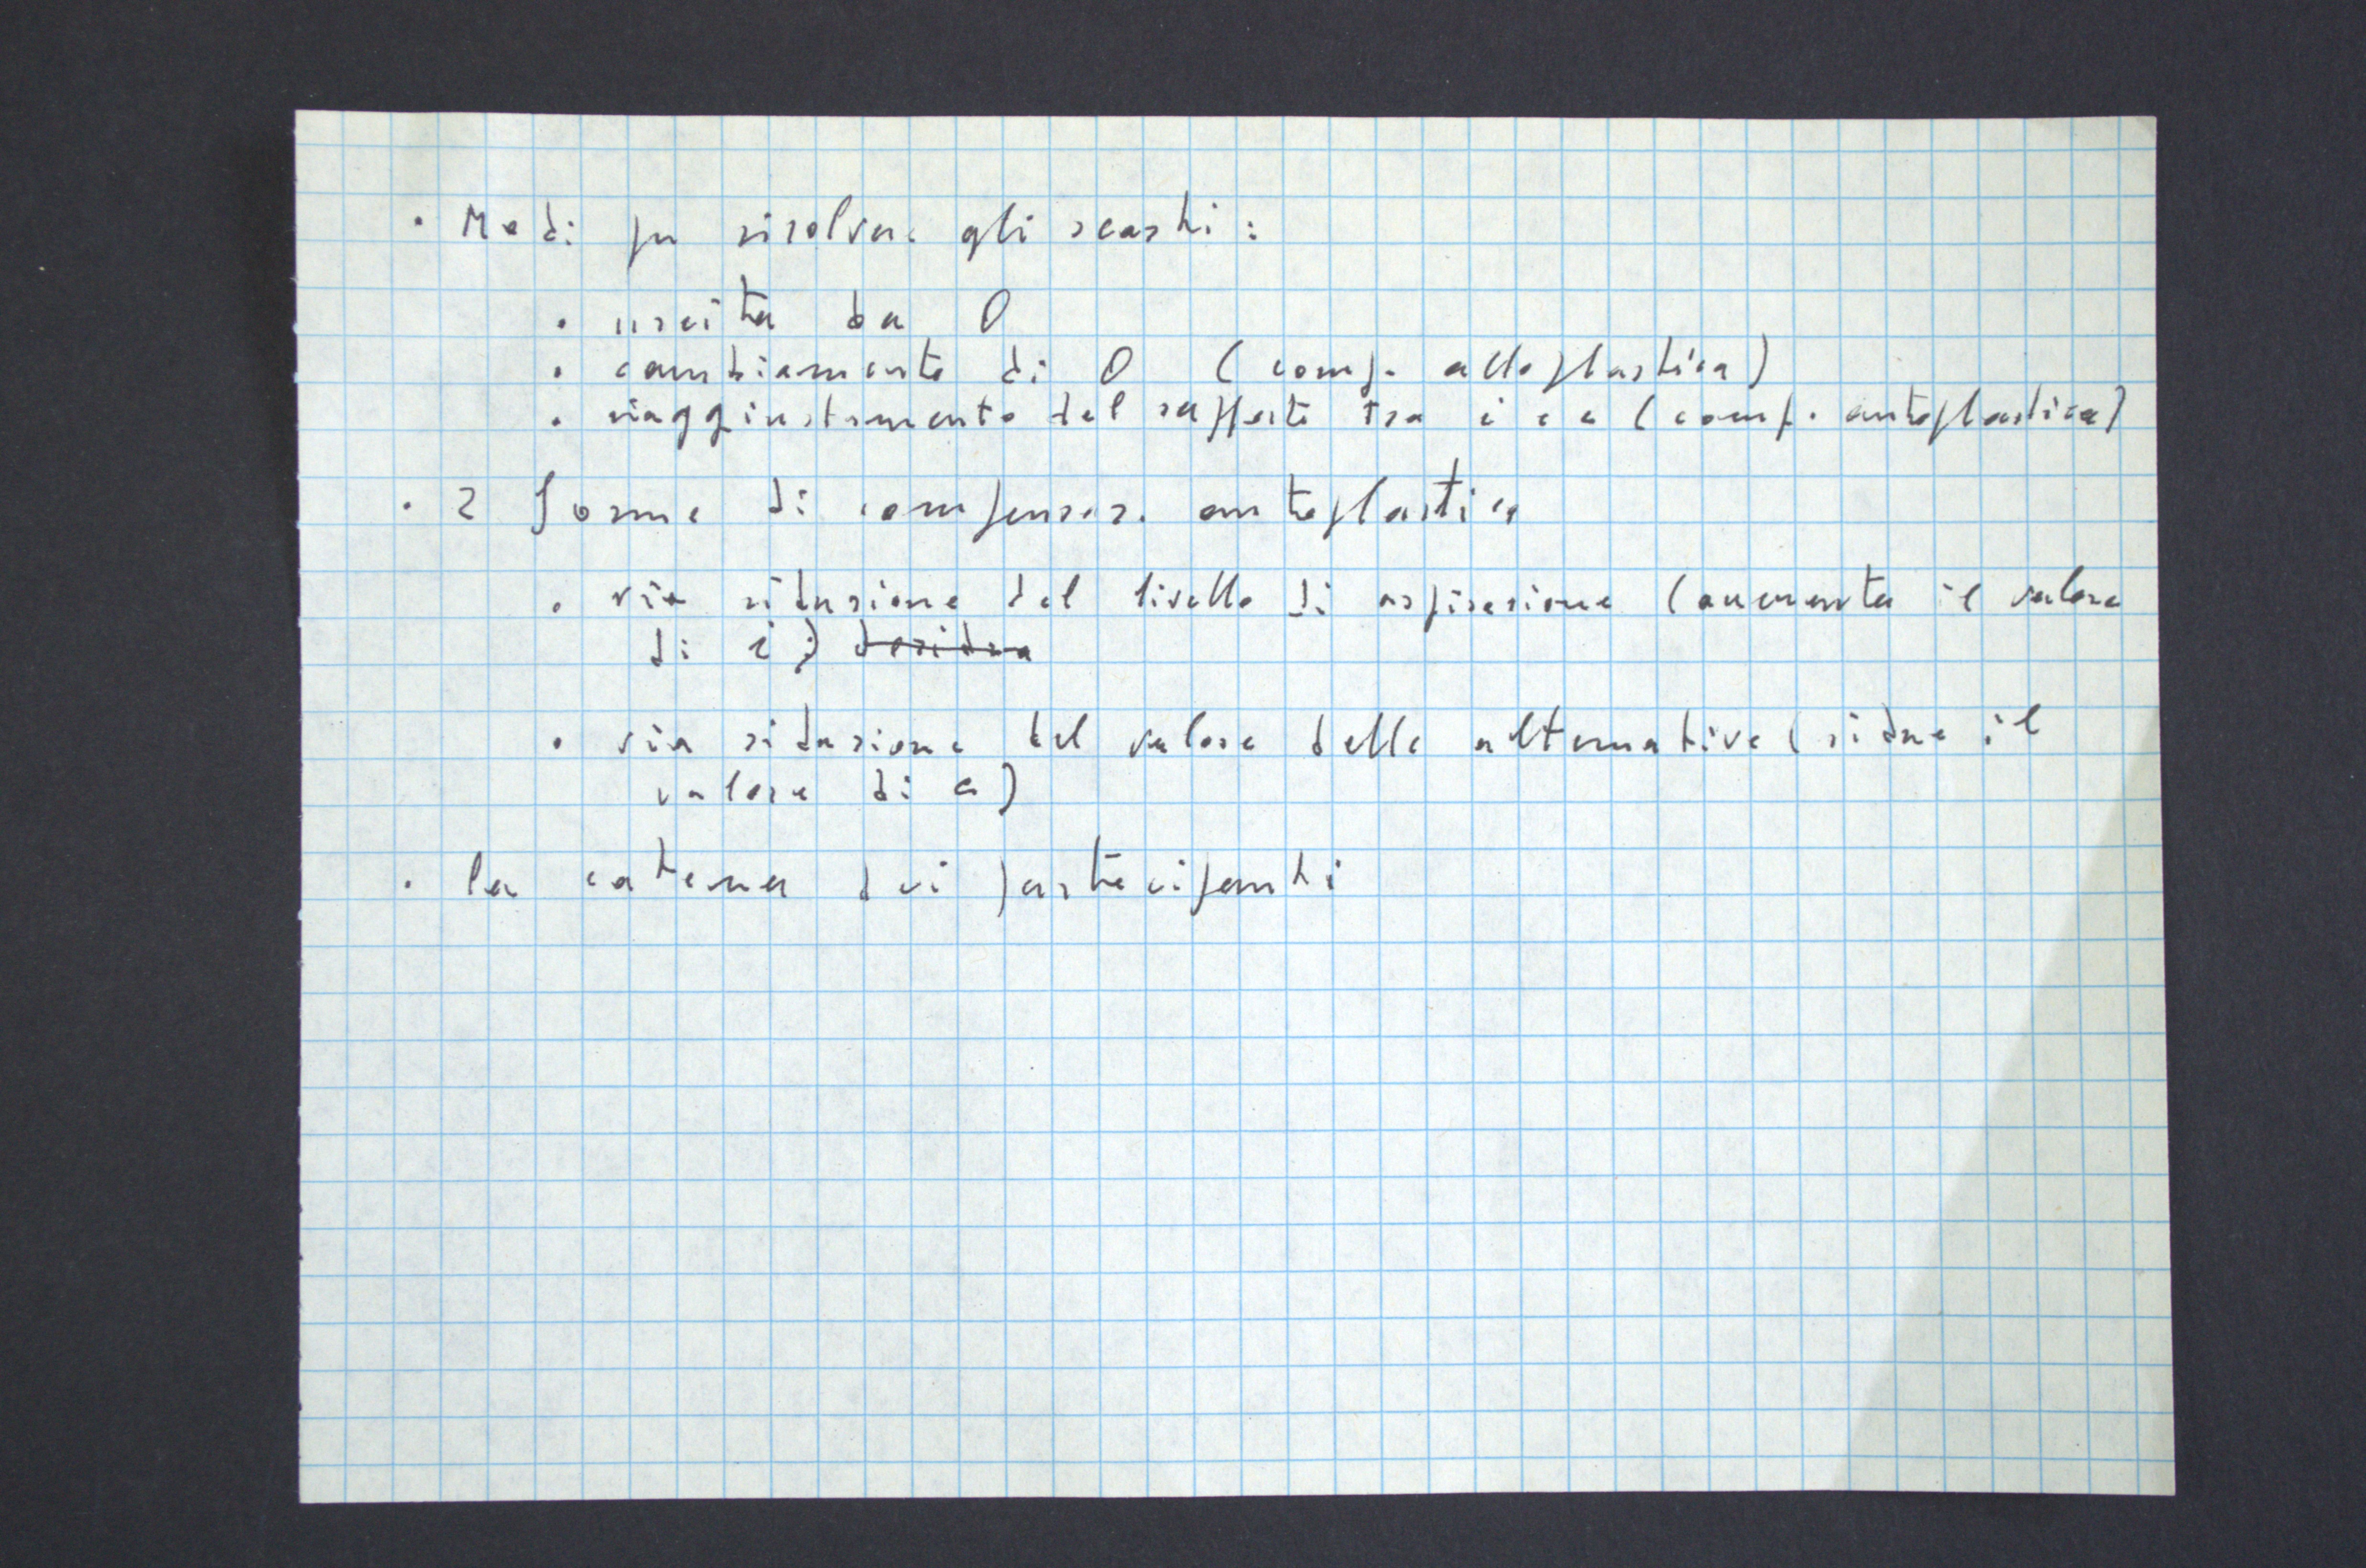 • Modi per risolvere gli scarti :
• uscita da O
• cambiamento di O ( comp. alloplastica )
• riaggiustamento del rapporto tra i e a ( comp. autoplastica )
• 2 forme di compensaz. autoplastica
• via riduzione del livello di aspirazione ( aumenta il valore
di i ; )
• via riduzione del valore delle alternative ( riduce il
valore di a )
• la catena dei partecipanti